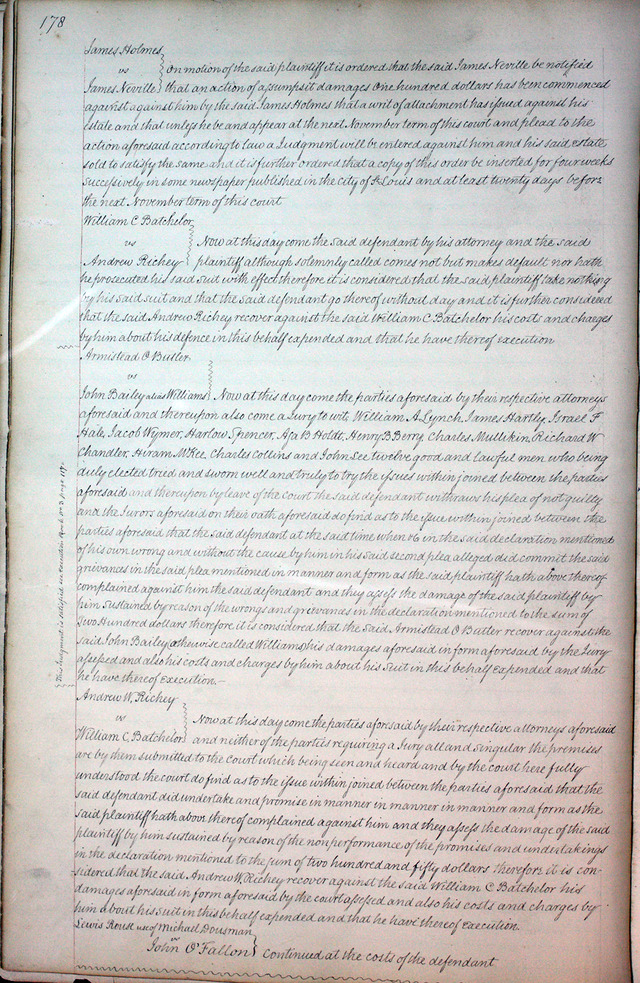 178
James Holmes
vs On motion of the said plaintiff it is ordered that the said James Neville be notified
James Neville that an action of assumpsit damages One hundred dollars has been commenced
against against him by the said James Holmes that a writ of attachment has issued against his
estate and that unless he be and appear at the next November term of this court and plead to the
action aforesaid according to law a Judgment will be entered against him and his said estate
sold to satisfy the same and it is further ordered that a copy of this order be inserted for four weeks
successively in some newspaper published in the city of St Louis and at least twenty days before
the next November term of this court
William C Batchelor
vs Now at this day come the said defendant by his attorney and the said
Andrew Richey plaintiff although solemnly called comes not but makes default nor hath
he prosecuted his said suit with effect therefore it is considered that the said plaintiff take nothing
by his said suit and that the said defendant go thereof without day and it is further considered
that the said Andrew Richey recover against the said William C Batchelor his costs and charges
by him about his defence in this behalf expended and that he have thereof execution
Armistead O Butler
vs
John Bailey alias Williams Now at this day come the parties aforesaid by their respective attorneys
aforesaid and thereupon also come a Jury to wit, William A Lynch, James Hartly, Israel F
Hale, Jacob Wymer, Harlow Spencer, Asa B Holdt, Henry B Berry Charles Mullikin, Richard W
Chandler, Hiram McKee, Charles Collins and John See twelve good and lawful men who being
duly elected tried and sworn well and truly to try the issues within joined between the parties
aforesaid and thereupon by leave of the Court the said defendant withdraws his plea of not guilty
and the Jurors aforesaid on their oath aforesaid do find as to the issue within joined between the
parties aforesaid that the said defendant at the said time when &c in the said declaration mentioned
of his own wrong and without the cause by him in his said second plea alleged did commit the said
grievances in the said plea mentioned in manner and form as the said plaintiff hath above thereof
complained against him the said defendant and they assess the damage of the said plaintiff by
him sustained by reason of the wrongs and grievances in the declaration mentioned to the sum of
Two Hundred dollars therefore it is considered that the said Armistead O Butler recover against the
said John Bailey (otherwise called Williams) his damages aforesaid in form aforesaid by the Jury
assessed and also his costs and charges by him about his suit in this behalf expended and that
he have thereof execution.—
This Judgment is satisfied see execution Book No 3 page 157
Andrew W. Richey
vs Now at this day come the parties aforesaid by their respective attorneys aforesaid
William C. Batchelor and neither of the parties requiring a Jury all and singular the premises
are by them submitted to the court which being seen and heard and by the court here fully
understood the court do find as to the issue within joined between the parties aforesaid that the
said defendant did undertake and promise in manner in manner in manner and form as the
said plaintiff hath above thereof complained against him and they assess the damage of the said
plaintiff by him sustained by reason of the nonperformance of the promises and undertakings
in the declaration mentioned to the sum of two hundred and fifty dollars therefore it is con-
sidered that the said Andrew W. Richey recover against the said William C Batchelor his
damages aforesaid in form aforesaid by the court assessed and also his costs and charges by
him about his suit in this behalf expended and that he have thereof execution.
Lewis Rouse use of Michael Dousman
John O'Fallon continued at the costs of the defendant